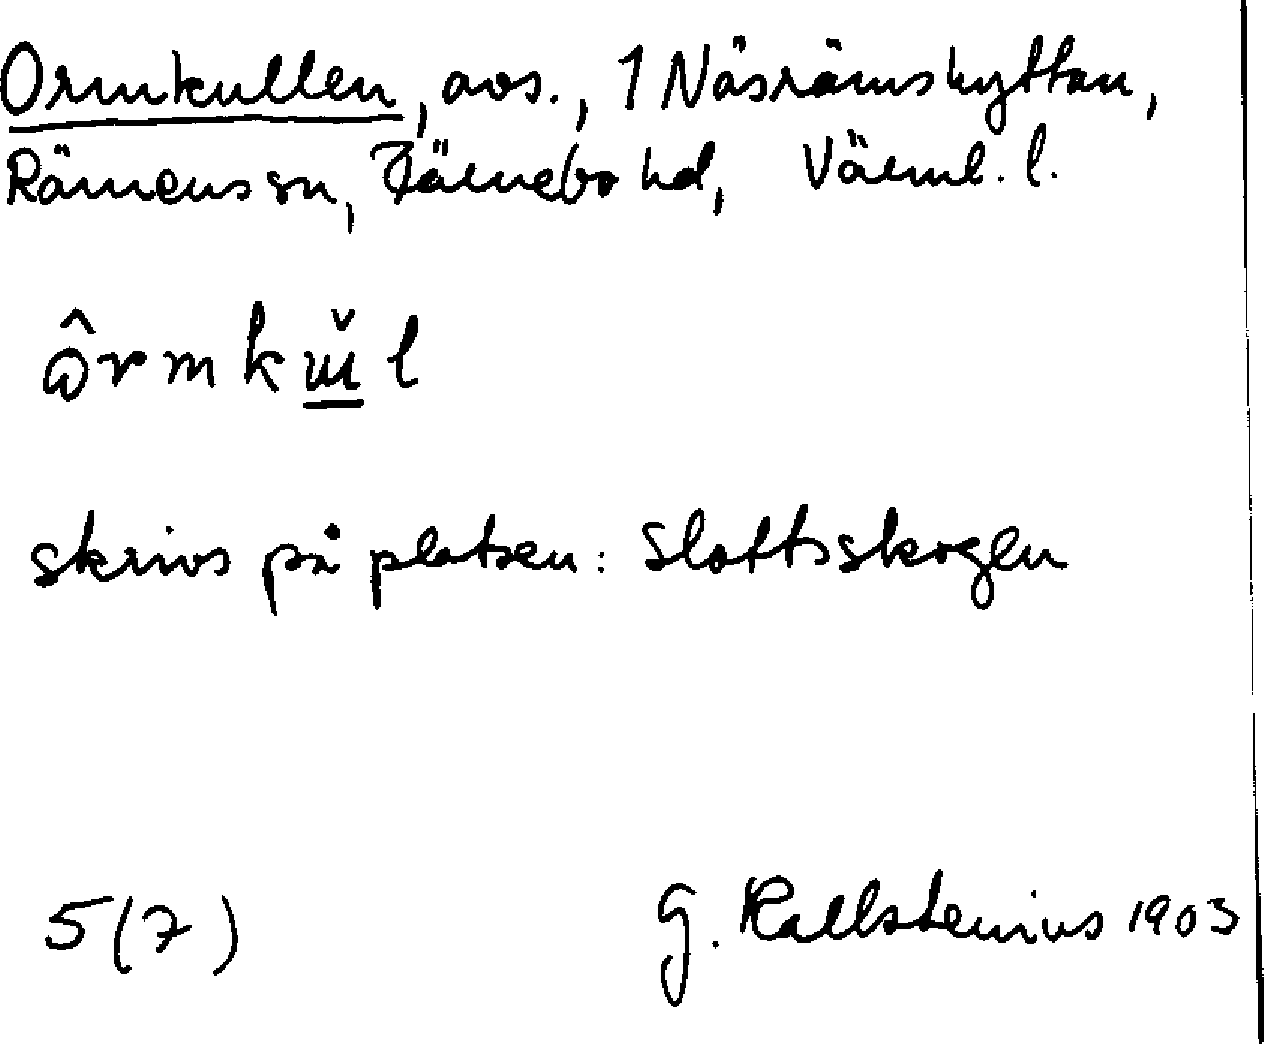 Ormkullen, avs., 1 Näsrämshyttan,
Rämens sn, Färnebo hd, Värml. l.
ôrmkɯ̌l
skrivs på platsen: Slottsskogen
5(7)
G. Kallstenius 1903